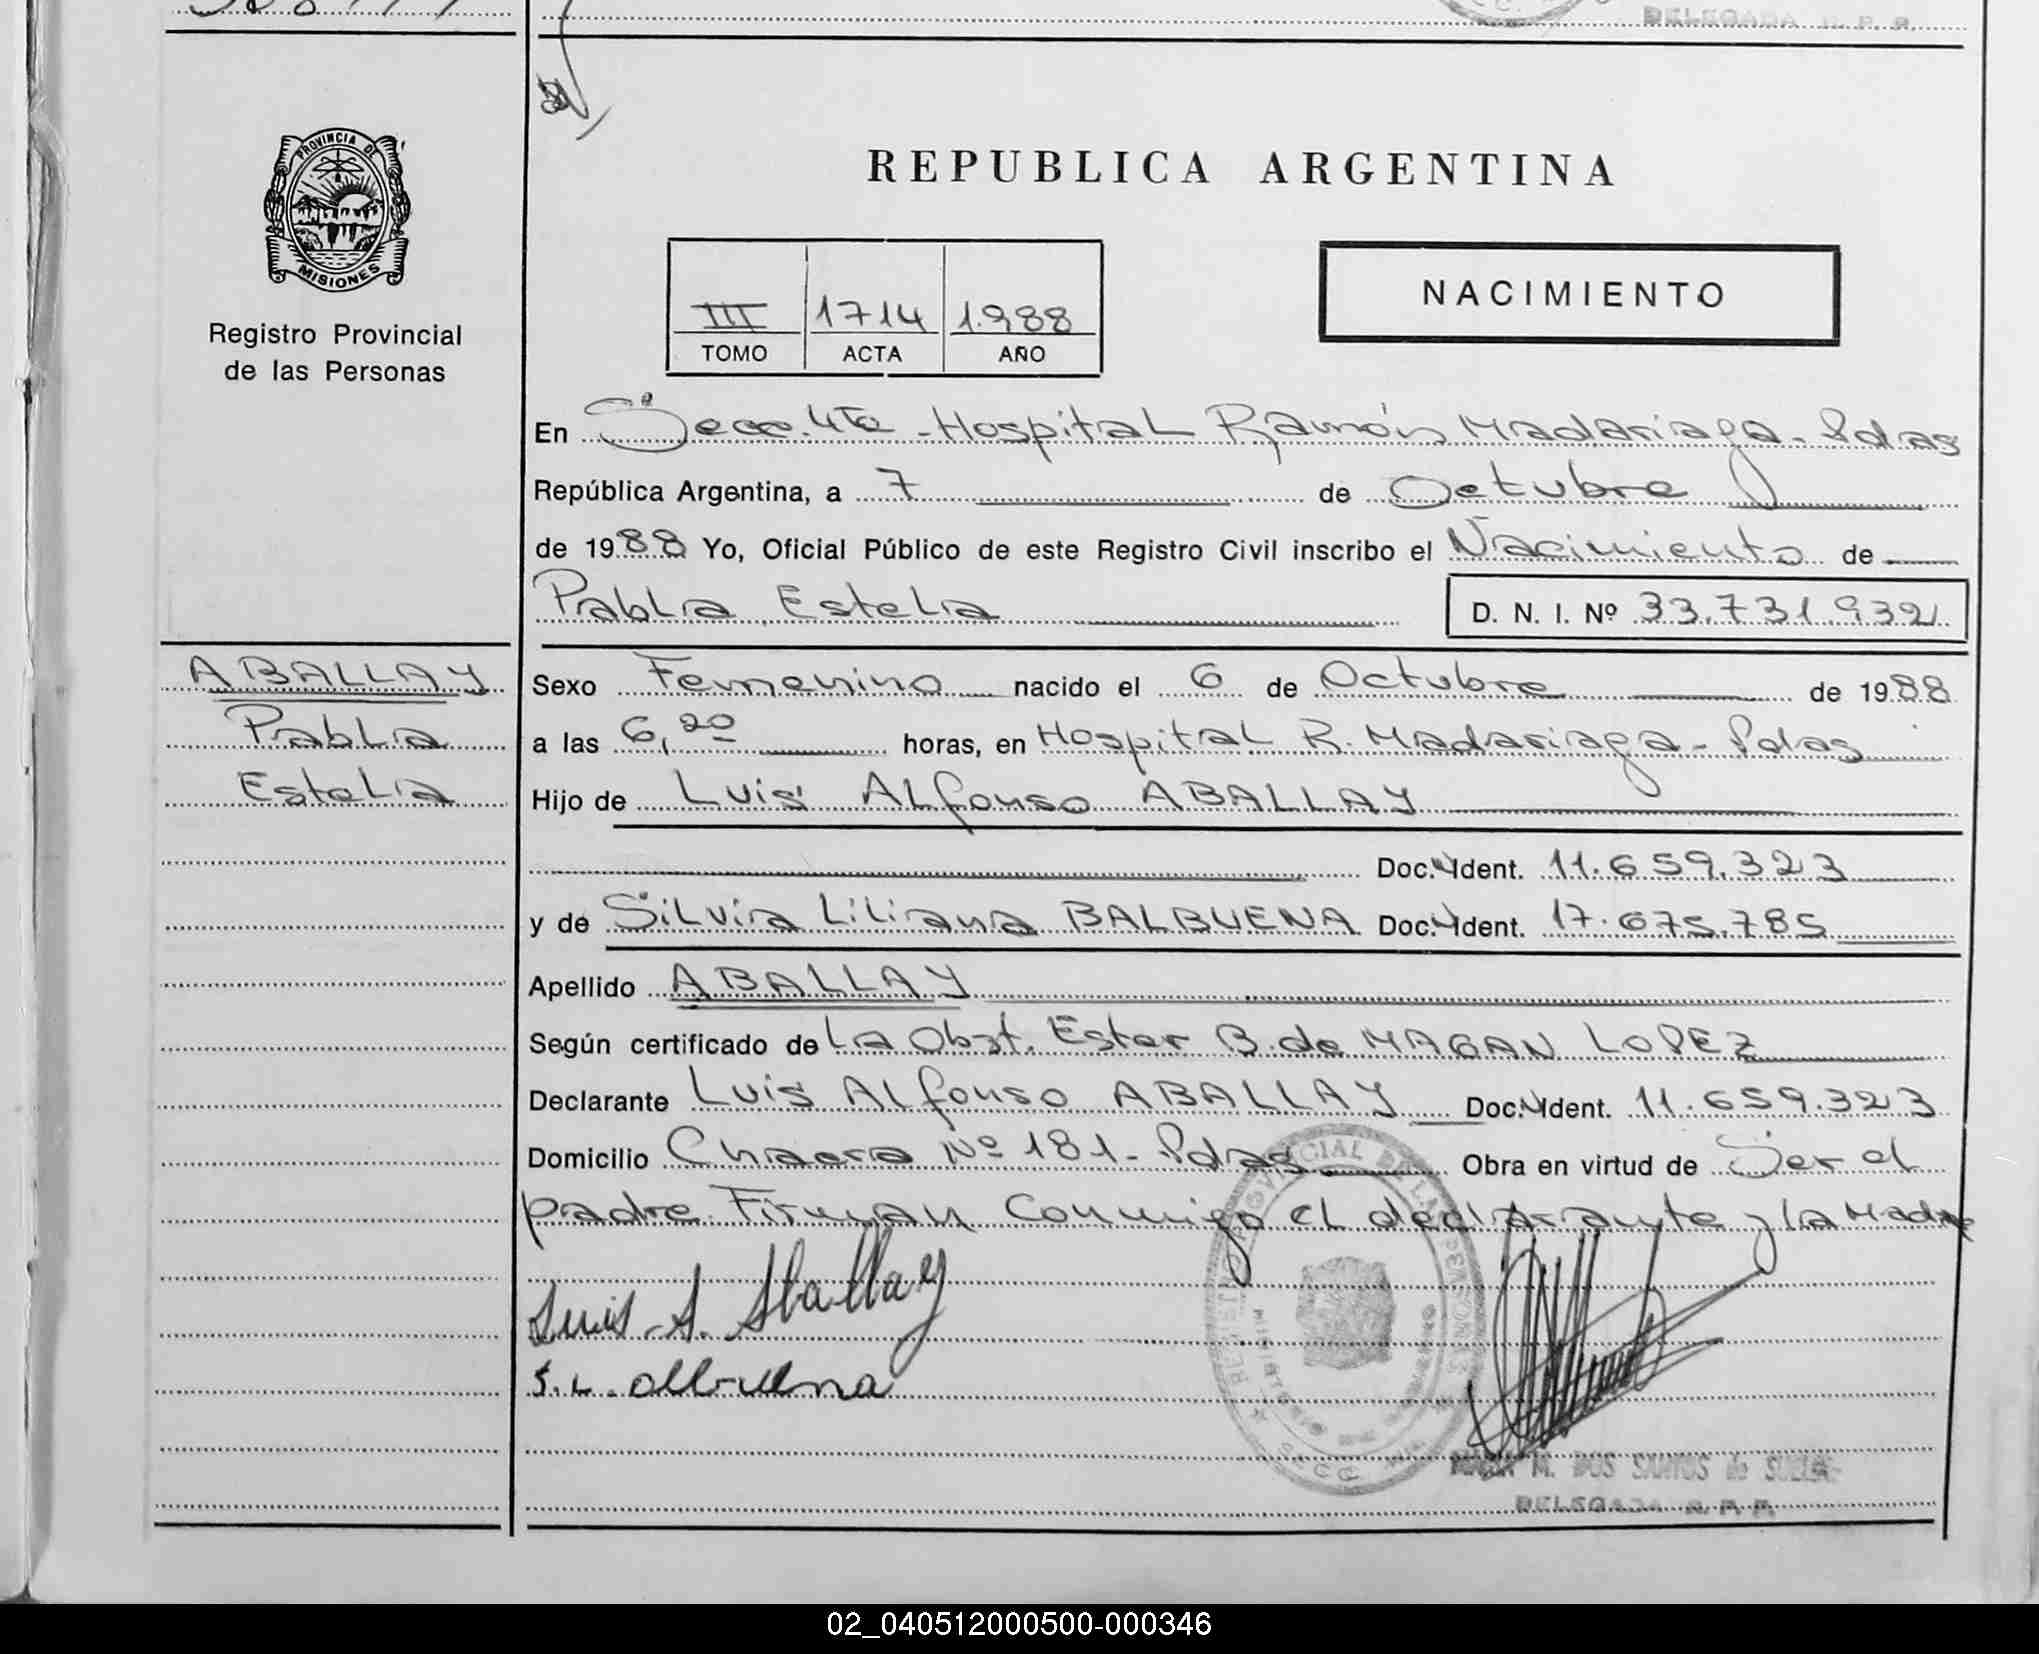 DELEGADA R. P. P.
PROVINCIA DE
MISIONES
Registro Provincial
de las Personas
REPUBLICA ARGENTINA
III 1714 1.988
TOMO ACTA AÑO
NACIMIENTO
En Secc. 4ta - Hospital Ramón Madariaga - Pdas
República Argentina, a 7 de Octubre
de 1988 Yo, Oficial Público de este Registro Civil inscribo el Nacimiento de
Pabla Estela
D. N. I. Nº 33.731.932
ABALLAY
Pabla
Estela
Sexo Femenino nacido el 6 de Octubre de 1988
a las 6,20 horas, en Hospital R. Madariaga - Pdas
Hijo de Luis Alfonso ABALLAY
Doc. Ident. 11.659.323
y de Silvia Liliana BALBUENA Doc. Ident. 17.675.785
Apellido ABALLAY
Según certificado de La Obst. Ester B. de MAGAN LOPEZ
Declarante Luis Alfonso ABALLAY Doc. Ident. 11.659.323
Domicilio Chacra Nº 181 - Pdas Obra en virtud de Ser el
padre Firman Conmigo el declarante y la Madre
Luis A. Aballay
S. L.
MARIA M. DOS SANTOS de
DELEGADA R. P. P.
02_040512000500-000346